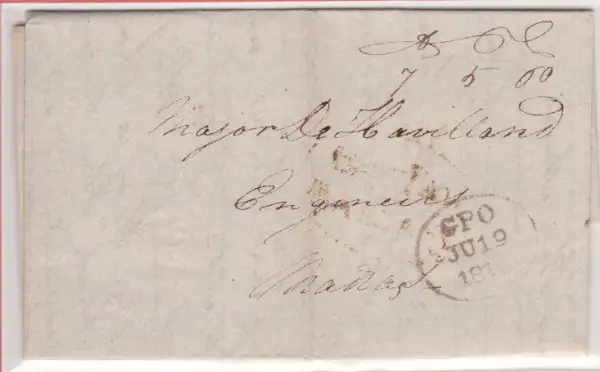 7 5 60
Major De Havilland
Engineers
Madras
GPO
JU19
18